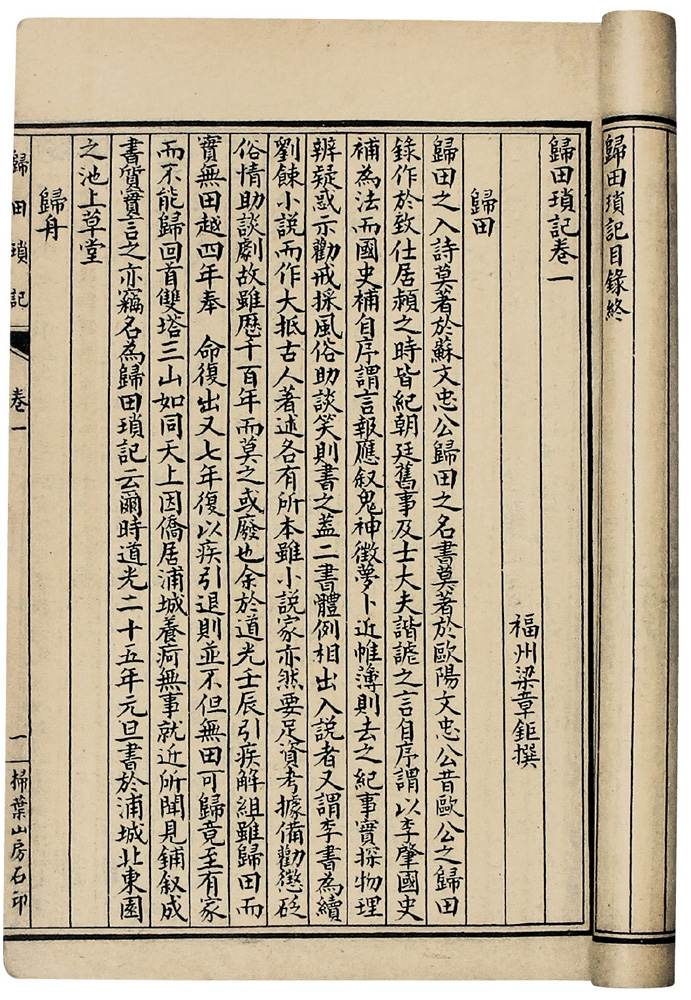 歸田瑣記目錄終
歸田瑣記卷一
福州梁章鉅撰
歸田
歸田之入詩莫著於蘇文忠公歸田之名書莫著於歐陽文忠公昔歐公之歸田
錄作於致仕居潁之時皆紀朝廷舊事及士大夫諧謔之言自序謂以李肇國史
補為法而國史補自序謂言報應叙鬼神徵夢卜近帷薄則去之紀事實探物理
辨疑惑示勸戒採風俗助談笑則書之蓋二書體例相出入說者又謂李書為續
劉餗小說而作大抵古人著述各有所本雖小說家亦然要足資考據備勸懲砭
俗情助談劇故雖歷千百年而莫之或廢也余於道光壬辰引疾解組雖歸田而
實無田越四年奉 命復出又七年復以疾引退則並不但無田可歸竟至有家
而不能歸回首雙塔三山如同天上因僑居浦城養疴無事就近所聞見鋪叙成
書質實言之亦竊名為歸田瑣記云爾時道光二十五年元旦書於浦城北東園
之池上草堂
歸舟
歸田瑣記 卷一 一 掃葉山房石印